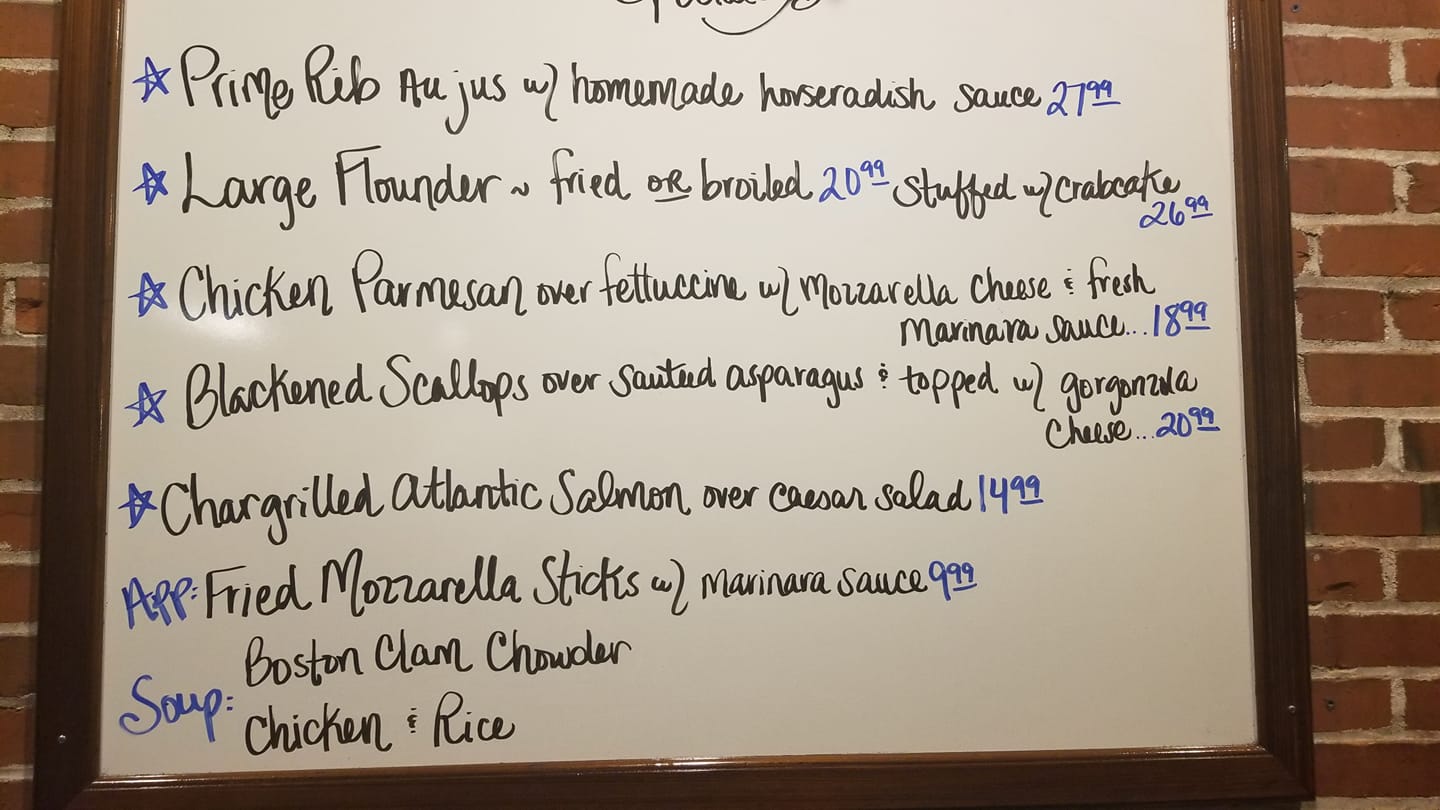 ☆ Prime Rib Au jus w/ homemade horseradish sauce 27⁹⁹
☆ Large Flounder ~ fried OR broiled 20⁹⁹ Stuffed w/ crabcake
26⁹⁹
☆ Chicken Parmesan over fettuccine w/ Mozzarella Cheese & fresh
Marinara sauce...18⁹⁹
☆ Blackened Scallops over sauteed asparagus & topped w/ gorgonzola
Cheese...20⁹⁹
☆ Chargrilled Atlantic Salmon over caesar salad 14⁹⁹
App: Fried Mozzarella Sticks w/ Marinara sauce 9⁹⁹
Boston Clam Chowder
Soup:
Chicken & Rice